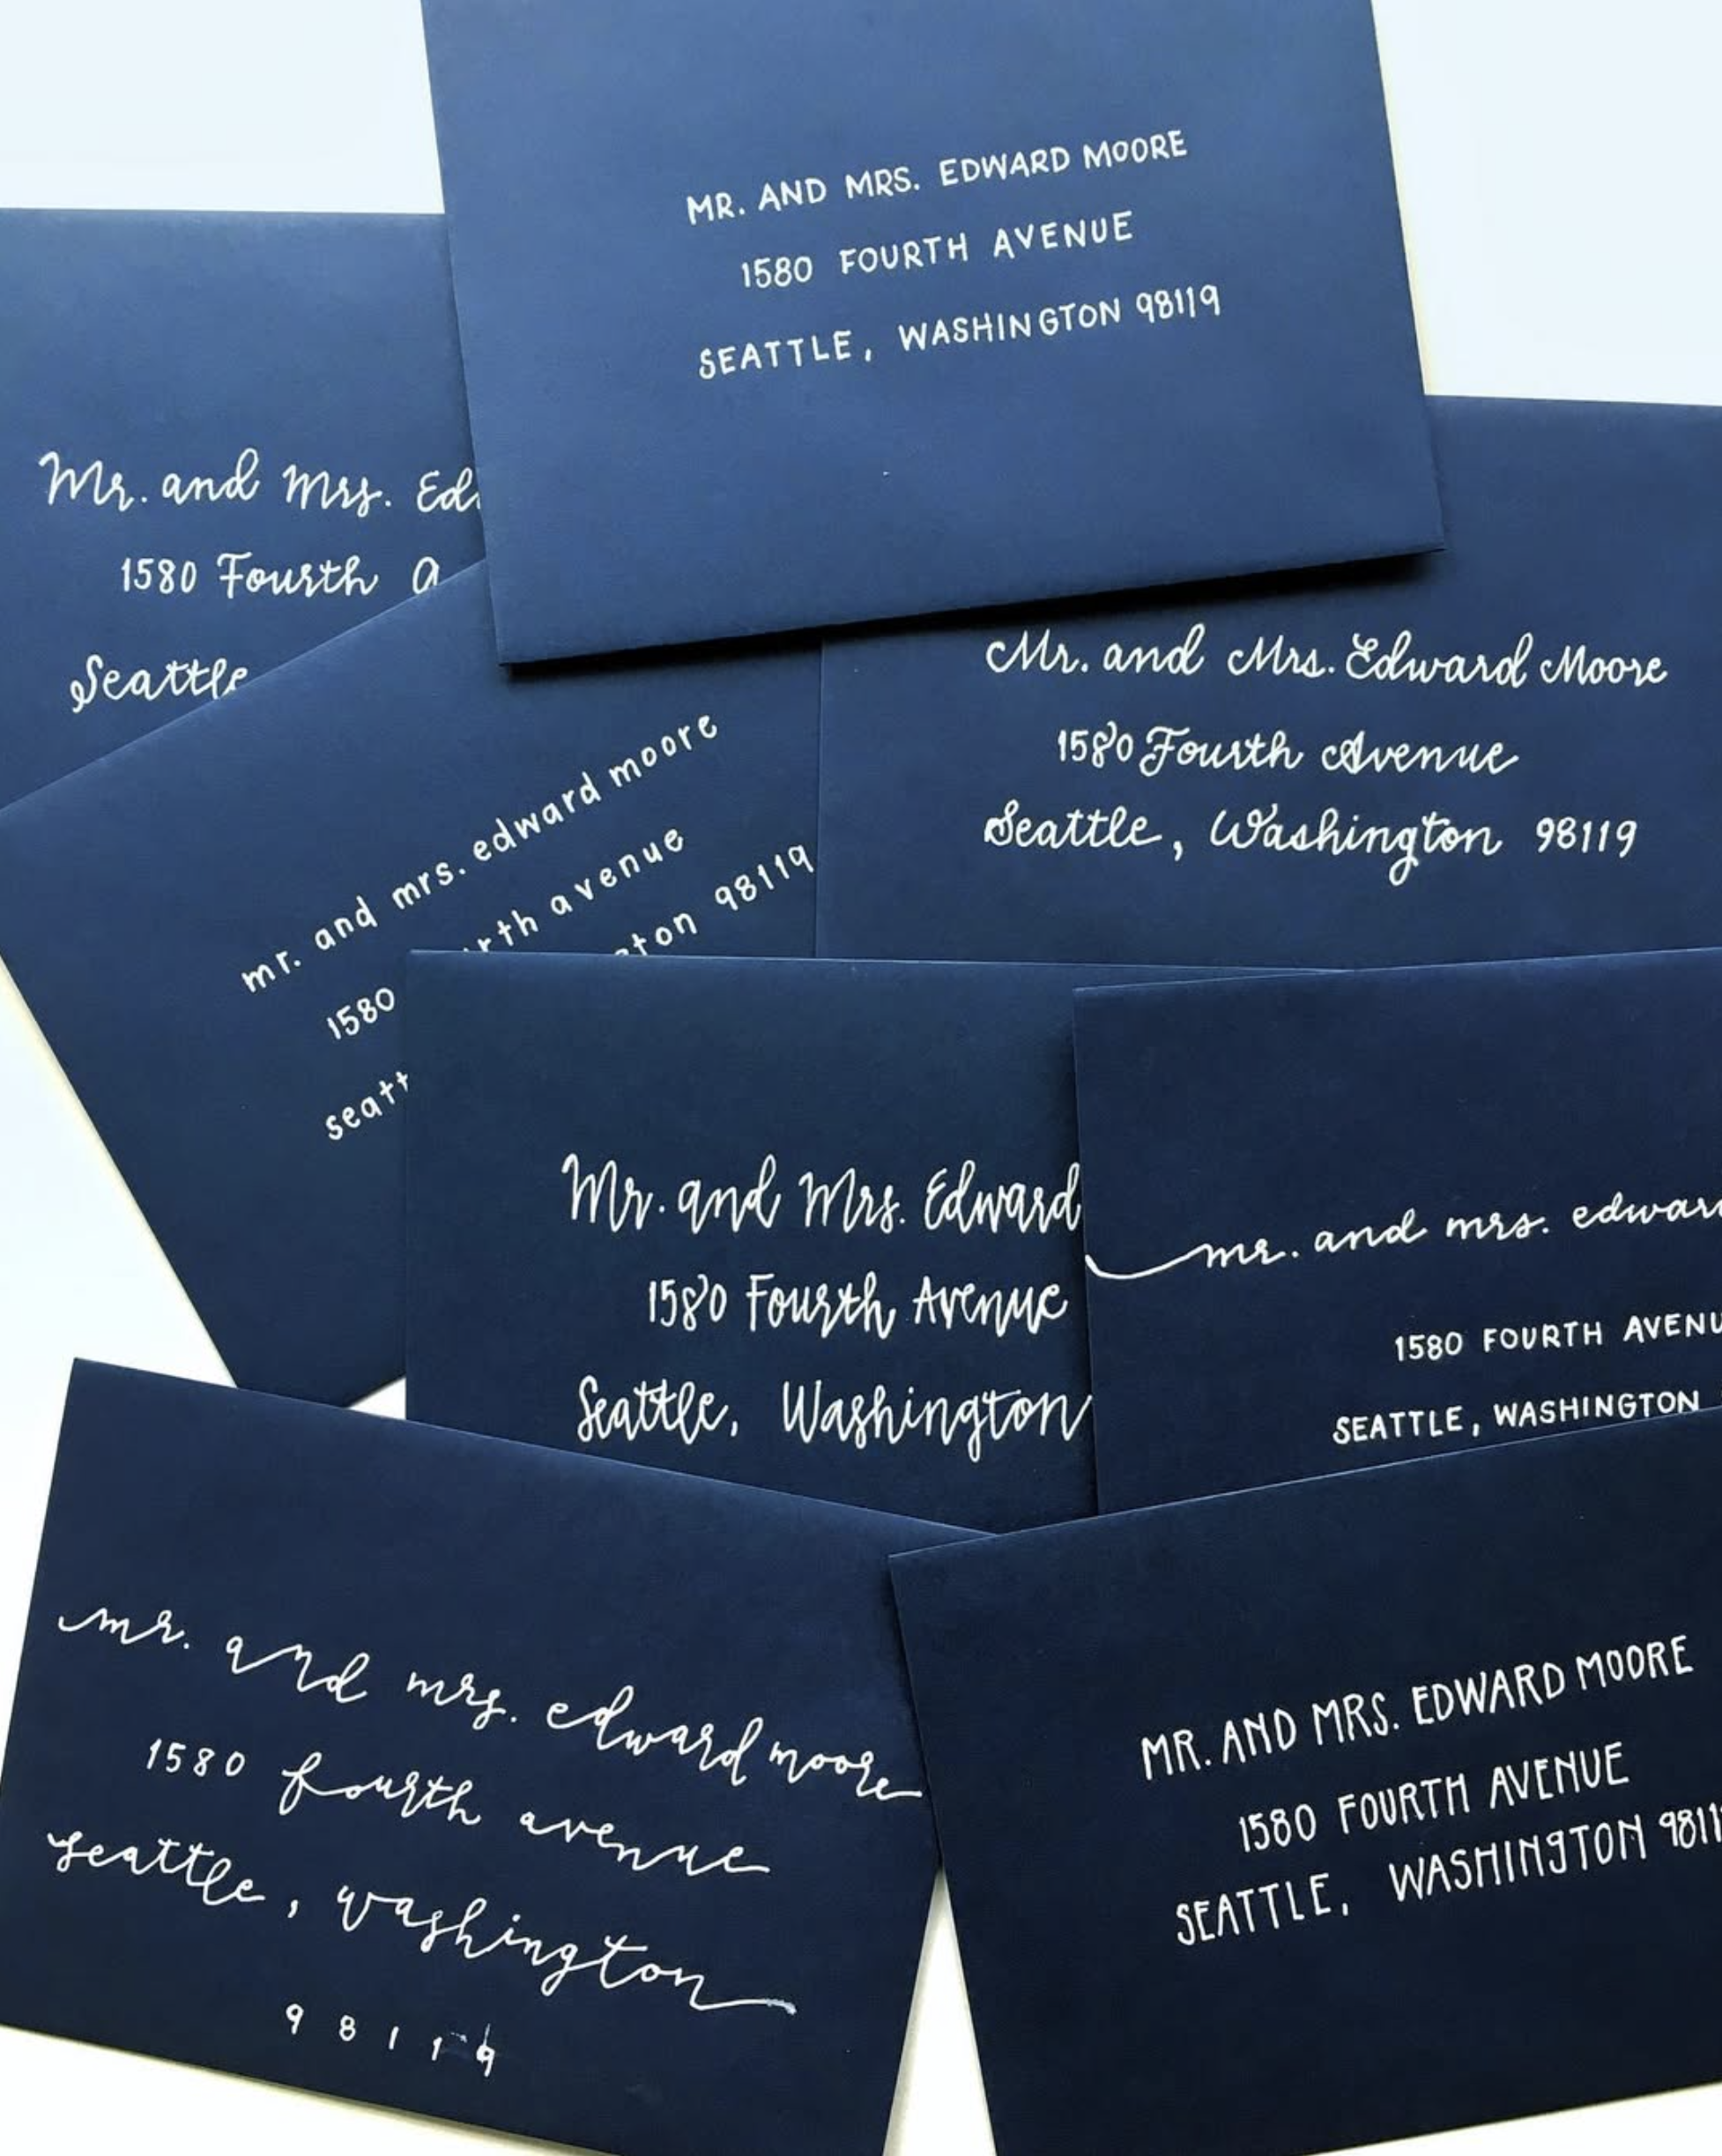 MR. AND MRS. EDWARD MOORE
1580 FOURTH AVENUE
SEATTLE, WASHINGTON 98119
Mr. and Mrs. Ed
1580 Fourth A
Seattle
Mr. and Mrs. Edward Moore
1580 Fourth Avenue
Seattle, Washington 98119
mr. and mrs. edward moore
1580 rth avenue
seatt ton 98119
Mr. and Mrs. Edward
1580 Fourth Avenue
Seattle, Washington
mr. and mrs. edwar
1580 FOURTH AVENU
SEATTLE, WASHINGTON
mr. and mrs. edward moore
1580 fourth avenue
seattle, washington
98119
MR. AND MRS. EDWARD MOORE
1580 FOURTH AVENUE
SEATTLE, WASHINGTON 9811